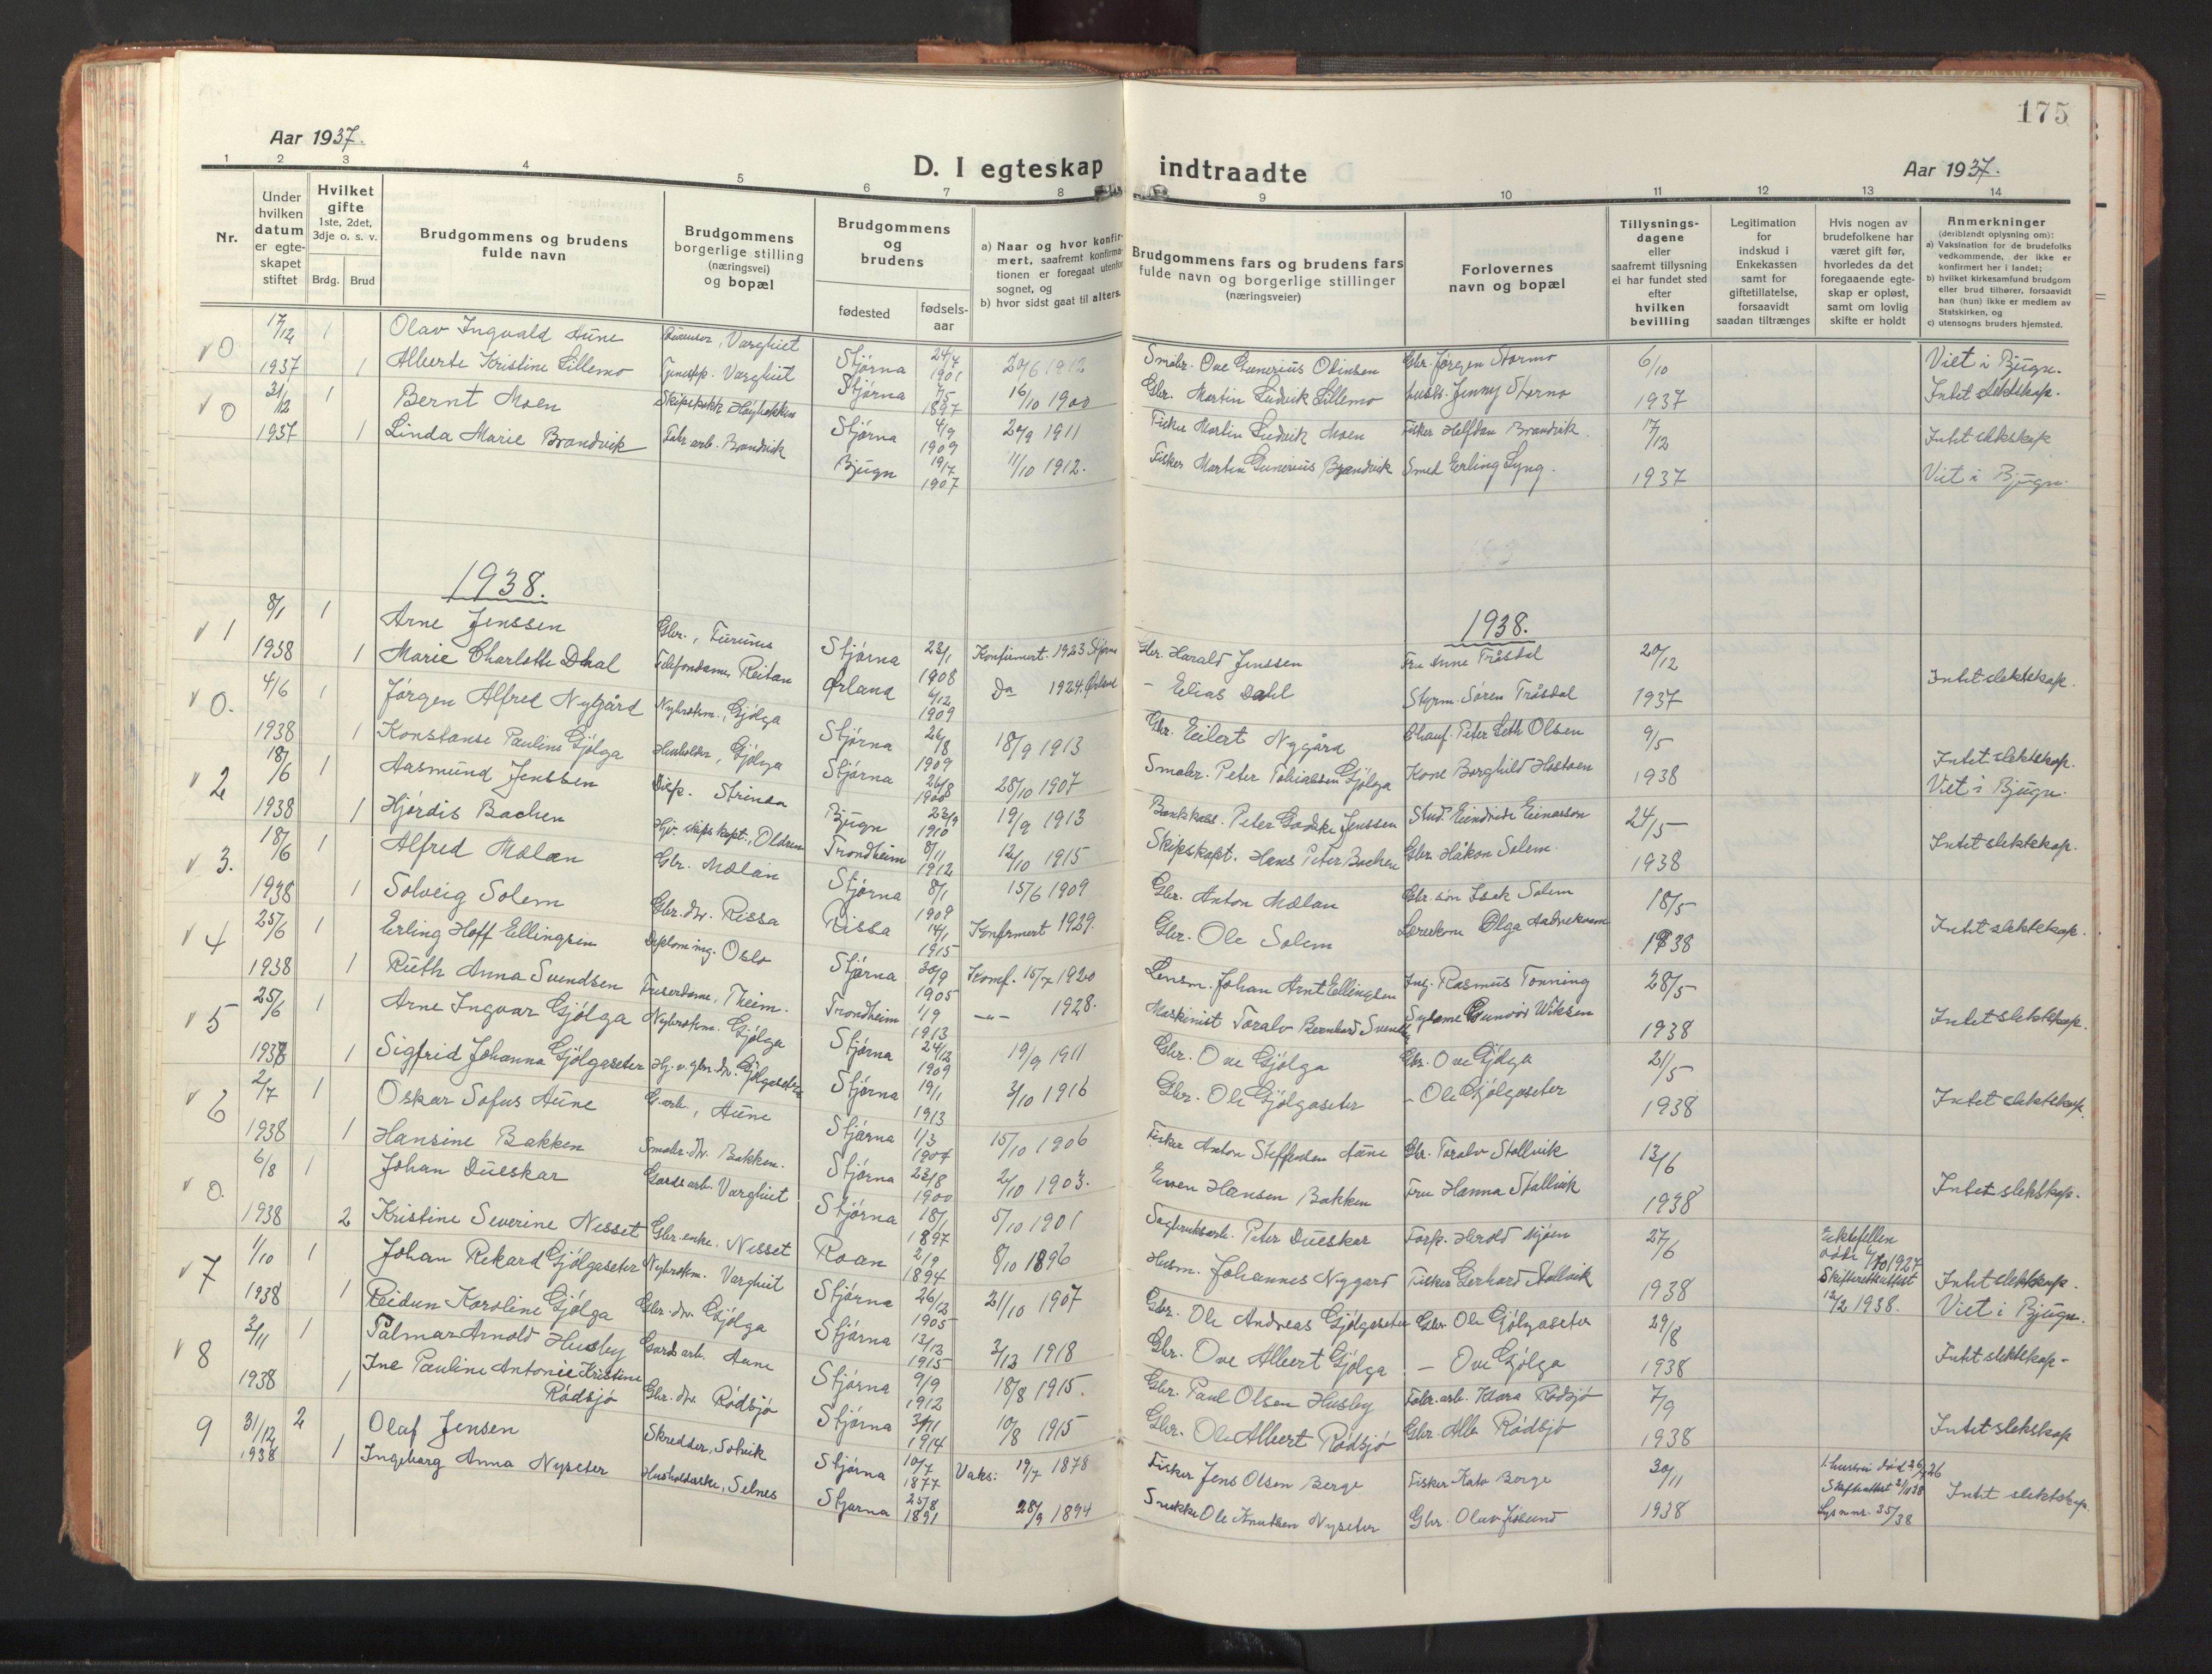 175
Aar 1937.
D. I egteskap indtraadte
Aar 1937.
1 2 3 4 5 6 7 8 9 10 11 12 13 14
Nr.
Under hvilken datum er egte-skapet stiftet
Hvilket gifte 1ste, 2det, 3dje o. s. v.
Brdg. Brud
Brudgommens og brudens fulde navn
Brudgommens borgerlige stilling (næringsvei) og bopæl
Brudgommens og brudens
fødested
fødsels-aar
a) Naar og hvor konfir-mert, saafremt konfirma-tionen er foregaat utenfor sognet, og
b) hvor sidst gaat til alters.
Brudgommens fars og brudens fars fulde navn og borgerlige stillinger (næringsveier)
Forlovernes navn og bopæl
Tillysnings-dagene eller saafremt tillysning ei har fundet sted efter hvilken bevilling
Legitimation for indskud i Enkekassen samt for giftetillatelse, forsaavidt saadan tiltrænges
Hvis nogen av brudefolkene har været gift før, hvorledes da det foregaaende egte-skap er opløst, samt om lovlig skifte er holdt
Anmerkninger (deriblandt oplysning om):
a) Vaksination for de brudefolks vedkommende, der ikke er konfirmert her i landet;
b) hvilket kirkesamfund brudgom eller brud tilhører, forsaavidt han (hun) ikke er medlem av Statskirken, og
c) utensogns bruders hjemsted.
v 0 17/12 1 Olav Ingvald Aune Varghiet Stjørna 24/4 1901 20/6 1912 Småbr. Ove Gunerius Odinsen Gbr. Jørgen Stormo 6/10 Viet i Bjugn.
1937 1 Alberte Kristine Lillemo Varghiet Stjørna 7/5 1897 16/10 1900 Gbr. Martin Ludvik Lillemo Jenny Stormo 1937 Intet slektskap.
v 0 31/12 1 Bernt Moen Stjørna 4/9 1909 20/9 1911 Fisker Martin Ludvik Moen Fisker Halfdan Brandvik 17/12 Intet slekskap
1937 1 Linda Marie Brandvik Fabr. arb. Brandvik Bjugn 19/7 1907 11/10 1912. Fisker Martin Gunerius Brandvik Smed Erling Lyng. 1937 Viet i Bjugn.
1938.
1938.
v 1 8/1 1 Arne Jenssen Gbr., Furunes Stjørna 23/1 1908 Konfirmert. 1923 Stjørna Gbr. Harald Jenssen Fru Anne Tråsdal 20/12 Intet slektskap.
1938 1 Marie Charlotte Dahl Telefondame, Reitan Ørland 6/12 1909 Do 1924. Ørland – Elias Dahl Styrm. Søren Tråsdal 1937
v 0. 4/6 1 Jørgen Alfred Nygård Nybrotsm., Gjølga Stjørna 26/8 1909 18/9 1913 Gbr. Eilert Nygård Chauf. Peter Leth Olsen 9/5 Intet slektskap.
1938 1 Konstanse Pauline Gjølga Husholder, Gjølga Stjørna 26/8 1900 28/10 1907 Småbr. Peter Tobiassen Gjølga Kone Borghild Hosteen 1938 Viet i Bjugn.
v 2 18/6 1 Aasmund Jenssen Disp. Strinda Bjugn 23/9 1910 19/9 1913 Bankkass. Peter Godske Jenssen Stud. Eindride Einarson 24/5 Intet slektskap.
1938 1 Hjørdis Bachen Hjv. skipskapt., Oldren Trondheim 8/11 1912 12/10 1915 Skipskapt. Hans Peter Bachen Gbr. Håkon Solem. 1938
v 3. 18/6 1 Alfred Mælan Gbr. Mælan Stjørna 8/1 1909 15/6 1909 Gbr. Anton Mælan Gbr. søn Isak Solem 18/5 Intet slektskap.
1938 1 Solveig Solem Gbr. dtr. Rissa Rissa 14/1 1915 Konfirmert 1929. Gbr. Ole Solem Lærerkone Olga 1938
v 4 25/6 1 Erling Hoff Ellingsen Diplom ing. Oslo Stjørna 30/9 1905 Konf. 15/7 1920 Lensm. Johan Arnt Ellingsen Ing. Rasmus Tønning 28/5 Intet slektskap.
1938 1 Ruth Anna Svendsen Friserdame, Theim. Trondheim 1/9 1913 –"– 1928. Maskinist Toralv Bernhard Svendsen Sydame Gunvor Wiksen 1938
v 5 25/6 1 Arne Ingvar Gjølga Nybrotsm. Gjølga Stjørna 24/12 1909 19/9 1911 Gbr. Ove Gjølga Gbr. Ove Gjølga 21/5 Intet slektskap.
1938 1 Sigfrid Johanna Gjølgaseter Hj. v. gbr. dtr. Gjølgaseter Stjørna 19/1 1913 3/10 1916 Gbr. Ole Gjølgaseter – Ole Gjølgaseter 1938
v 6 2/7 1 Oskar Sofus Aune G. arb., Aune Stjørna 1/3 1904 15/10 1906 Fisker Anton Steffensen Aune Gbr. Toralv Stallvik 13/6 Intet slektskap.
1938 1 Hansine Bakken Småbr. dtr. Bakken. Stjørna 23/8 1900 2/10 1903. Even Hansen Bakken Fru Hanna Stallvik 1938
v 0. 6/8 1 Johan Dueskar Gårdsarb. Varghiet Stjørna 18/1 1897 5/10 1901 Sagbruksarb. Peter Dueskar Forp. Herold Mjøen 27/6 Ektefellen døde 4/10 1927 Intet slektskap.
1938 2 Kristine Severine Nesset Gbr. enke. Nesset Roan 2/9 1894 8/10 1896 Husm. Johannes Nygaard Fisker Gerhard Stallvik 1938 Skifterettsattest 12/2 1938. Viet i Bjugn.
v 7 1/10 1 Johan Rekard Gjølgaseter Nybrotsm. Varghiet Stjørna 26/12 1905 21/10 1907 Gbr. Ole Andreas Gjølgaseter Gbr. Ole Gjølgaseter 29/8 Intet slektskap-
1938 1 Reidun Karoline Gjølga Gbr. dtr. Gjølga Stjørna 13/12 1915 2/12 1918 Gbr. Ove Albert Gjølga – Ove Gjølga 1938
v 8 2/11 1 Palmar Arnold Husby Gårdsarb. Aune Stjørna 9/9 1912 18/8 1915. Gbr. Paul Olsen Husby Fabr. arb. Klara Rødsjø 7/9 Intet slekskap
1938 1 Ine Pauline Antonie Kristine Rødsjø Gbr. dtr. Rødsjø Stjørna 3/11 1914 10/8 1915 Gbr. Ole Albert Rødsjø Gbr. Alb. Rødsjø 1938
9 31/12 2 Olaf Jensen Skredder, Solvik Stjørna 10/7 1877 Vaks: 19/7 1878 Fisker Jens Olsen Berge Fisker Kato Berge 30/11 1. hustru død 26/4 26 Intet slektskap.
1938 1 Ingeborg Anna Nyseter Husholderske, Selnes Stjørna 25/8 1891 28/9 1894 Snekker Ole Knutsen Nyseter Gbr. Olav 1938 Skifteattest 2/11 38 Lysn. nr. 35/38